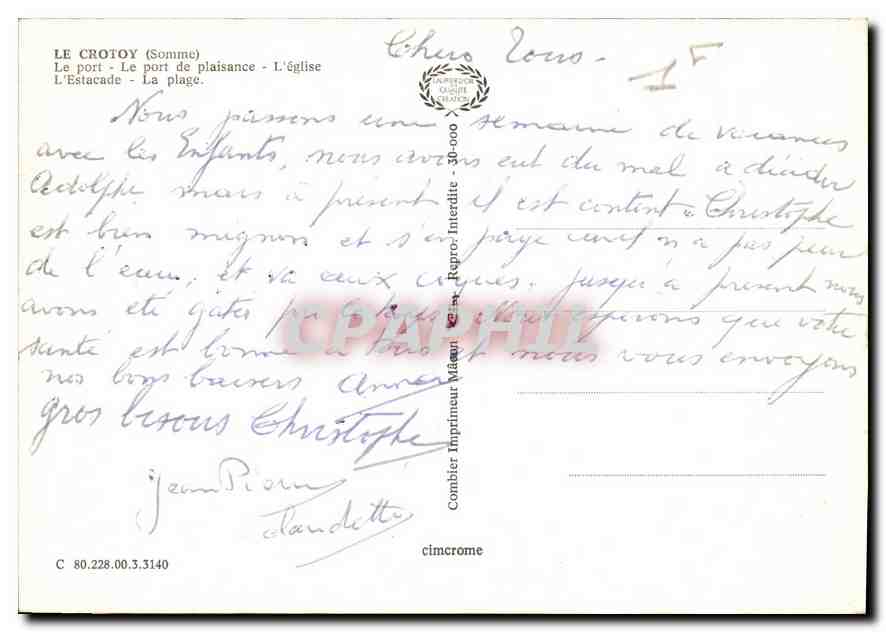 LE CROTOY (Somme)
Le port - Le port de plaisance - L'église
L'Estacade - La plage.
Chers Tous -
1F
LABEL D'OR
QUALITÉ
CREATION
Nous passons une semaine de vacances
avec les Enfants, nous avons eut du mal à décider
Adolphe, mais à present il est content. Christophe
est bien mignon et s'en paye car il n'a pas peur
de l'eau, et va aux coques. jusqu'à present nous
avons été gâtés par le temps. espérons que votre
santé est bonne à Tous et nous vous envoyons
nos bons baisers
gros bisous Christophe
Jean Pierre
Claudette
Combier Imprimeur Mâcon Repro. Interdite - 30-000
CPAPHIL
C 80.228.00.3.3140
cimcrome